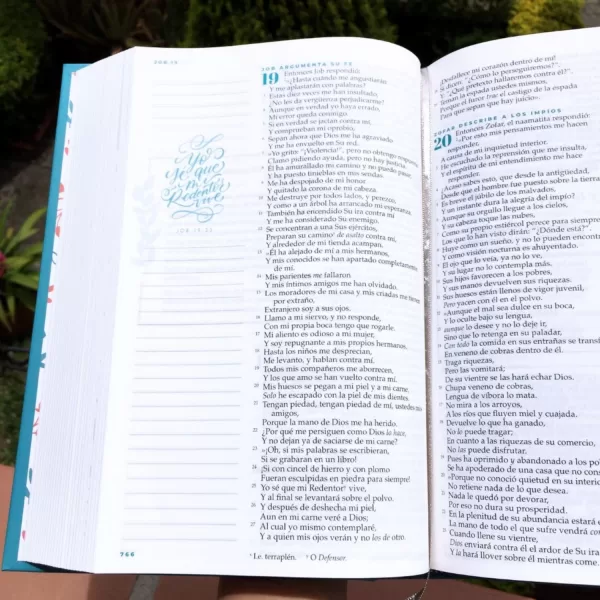 JOB 19
Yo
sé que
mi
Redentor
vive
JOB 19:25
JOB ARGUMENTA SU FE
19 Entonces Job respondió:
2 »¿Hasta cuándo me angustiarán
Y me aplastarán con palabras?
3 Estas diez veces me han insultado,
¿No les da vergüenza perjudicarme?
4 Aunque en verdad yo haya errado,
Mi error queda conmigo.
5 Si en verdad se jactan contra mí,
Y comprueban mi oprobio,
6 Sepan ahora que Dios me ha agraviado
Y me ha envuelto en Su red.
7 »Yo grito: “¡Violencia!”, pero no obtengo respuesta;
Clamo pidiendo ayuda, pero no hay justicia.
8 Él ha amurallado mi camino y no puedo pasar,
Y ha puesto tinieblas en mis sendas.
9 Me ha despojado de mi honor
Y quitado la corona de mi cabeza.
10 Me destruye por todos lados, y perezco,
Y como a un árbol ha arrancado mi esperanza.
11 También ha encendido Su ira contra mí
Y me ha considerado Su enemigo.
12 Se concentran a una Sus ejércitos,
Preparan su camino de asalto contra mí,
Y alrededor de mi tienda acampan,
13 »Él ha alejado de mí a mis hermanos,
Y mis conocidos se han apartado completamente
de mí.
14 Mis parientes me fallaron
Y mis íntimos amigos me han olvidado.
15 Los moradores de mi casa y mis criadas me tienen
por extraño,
Extranjero soy a sus ojos.
16 Llamo a mi siervo, y no responde,
Con mi propia boca tengo que rogarle.
17 Mi aliento es odioso a mi mujer,
Y soy repugnante a mis propios hermanos.
18 Hasta los niños me desprecian,
Me levanto, y hablan contra mí.
19 Todos mis compañeros me aborrecen,
Y los que amo se han vuelto contra mí.
20 Mis huesos se pegan a mi piel y a mi carne,
Solo he escapado con la piel de mis dientes.
21 Tengan piedad, tengan piedad de mí, ustedes mis
amigos,
Porque la mano de Dios me ha herido.
22 ¿Por qué me persiguen como Dios lo hace,
Y no dejan ya de saciarse de mi carne?
23 »¡Oh, si mis palabras se escribieran,
Si se grabaran en un libro!
24 ¡Si con cincel de hierro y con plomo
Fueran esculpidas en piedra para siempre!
25 Yo sé que mi Redentor vive,
Y al final se levantará sobre el polvo.
26 Y después de deshecha mi piel,
Aun en mi carne veré a Dios;
27 Al cual yo mismo contemplaré,
Y a quien mis ojos verán y no los de otro.
Le. terraplén. O Defensor.
766
Desfallece mi corazón dentro de mí!
Si dicen: “¿Cómo lo perseguiremos?”.
Y: “¿Qué pretexto hallaremos contra él?”.
Teman la espada ustedes mismos,
Porque el furor trae el castigo de la espada
Para que sepan que hay juicio».
ZOFAR DESCRIBE A LOS IMPÍOS
20 Entonces Zofar, el naamatita respondió:
»Por esto mis pensamientos me hacen
responder,
A causa de mi inquietud interior.
He escuchado la reprensión que me insulta,
Y el espíritu de mi entendimiento me hace
responder.
¿Acaso sabes esto, que desde la antigüedad,
Desde que el hombre fue puesto sobre la tierra
Es breve el júbilo de los malvados,
Y un instante dura la alegría del impío?
Aunque su orgullo llegue a los cielos,
Y su cabeza toque las nubes,
Como su propio estiércol perece para siempre;
Los que lo han visto dirán: “¿Dónde está?”.
Huye como un sueño, y no lo pueden encontrar
Y como visión nocturna es ahuyentado.
El ojo que lo veía, ya no lo ve,
Y su lugar no lo contempla más.
Sus hijos favorecen a los pobres,
Y sus manos devuelven sus riquezas.
Sus huesos están llenos de vigor juvenil,
Pero yacen con él en el polvo.
»Aunque el mal sea dulce en su boca,
Y lo oculte bajo su lengua,
aunque lo desee y no lo deje ir,
Sino que lo retenga en su paladar,
Con todo la comida en sus entrañas se transf
En veneno de cobras dentro de él.
Traga riquezas,
Pero las vomitará;
De su vientre se las hará echar Dios.
Chupa veneno de cobras,
Lengua de víbora lo mata.
No mira a los arroyos,
A los ríos que fluyen miel y cuajada.
Devuelve lo que ha ganado,
No lo puede tragar;
En cuanto a las riquezas de su comercio,
No las puede disfrutar.
Pues ha oprimido y abandonado a los pob
Se ha apoderado de una casa que no cons
»Porque no conoció quietud en su interio
No retiene nada de lo que desea.
Nada le quedó por devorar,
Por eso no dura su prosperidad.
En la plenitud de su abundancia estará e
La mano de todo el que sufre vendrá con
Cuando llene su vientre,
Dios enviará contra él el ardor de Su ira
Y la hará llover sobre él mientras come.